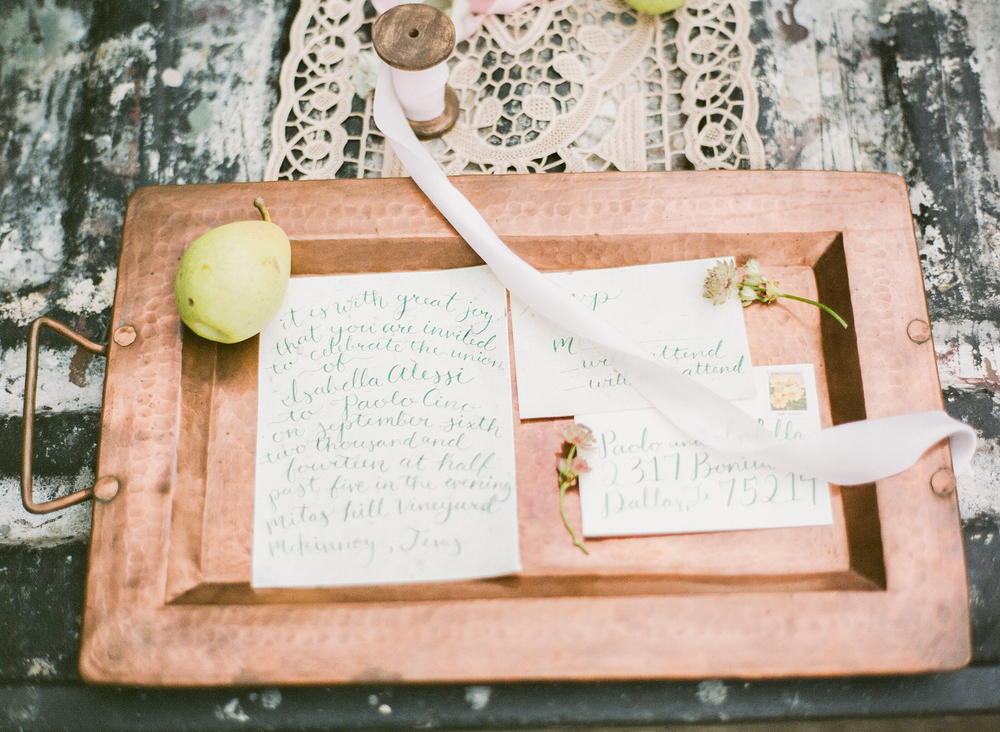 it is with great joy
that you are invited
to celebrate the union
of
Isabella Alessi
to Paolo Cino
on september sixth
two thousand and
fourteen at half
past five in the evening
Mitas hill Vineyard
Mckinney, Texas
M
will attend
attend
Paolo
2317
Dallas, Tx 75214